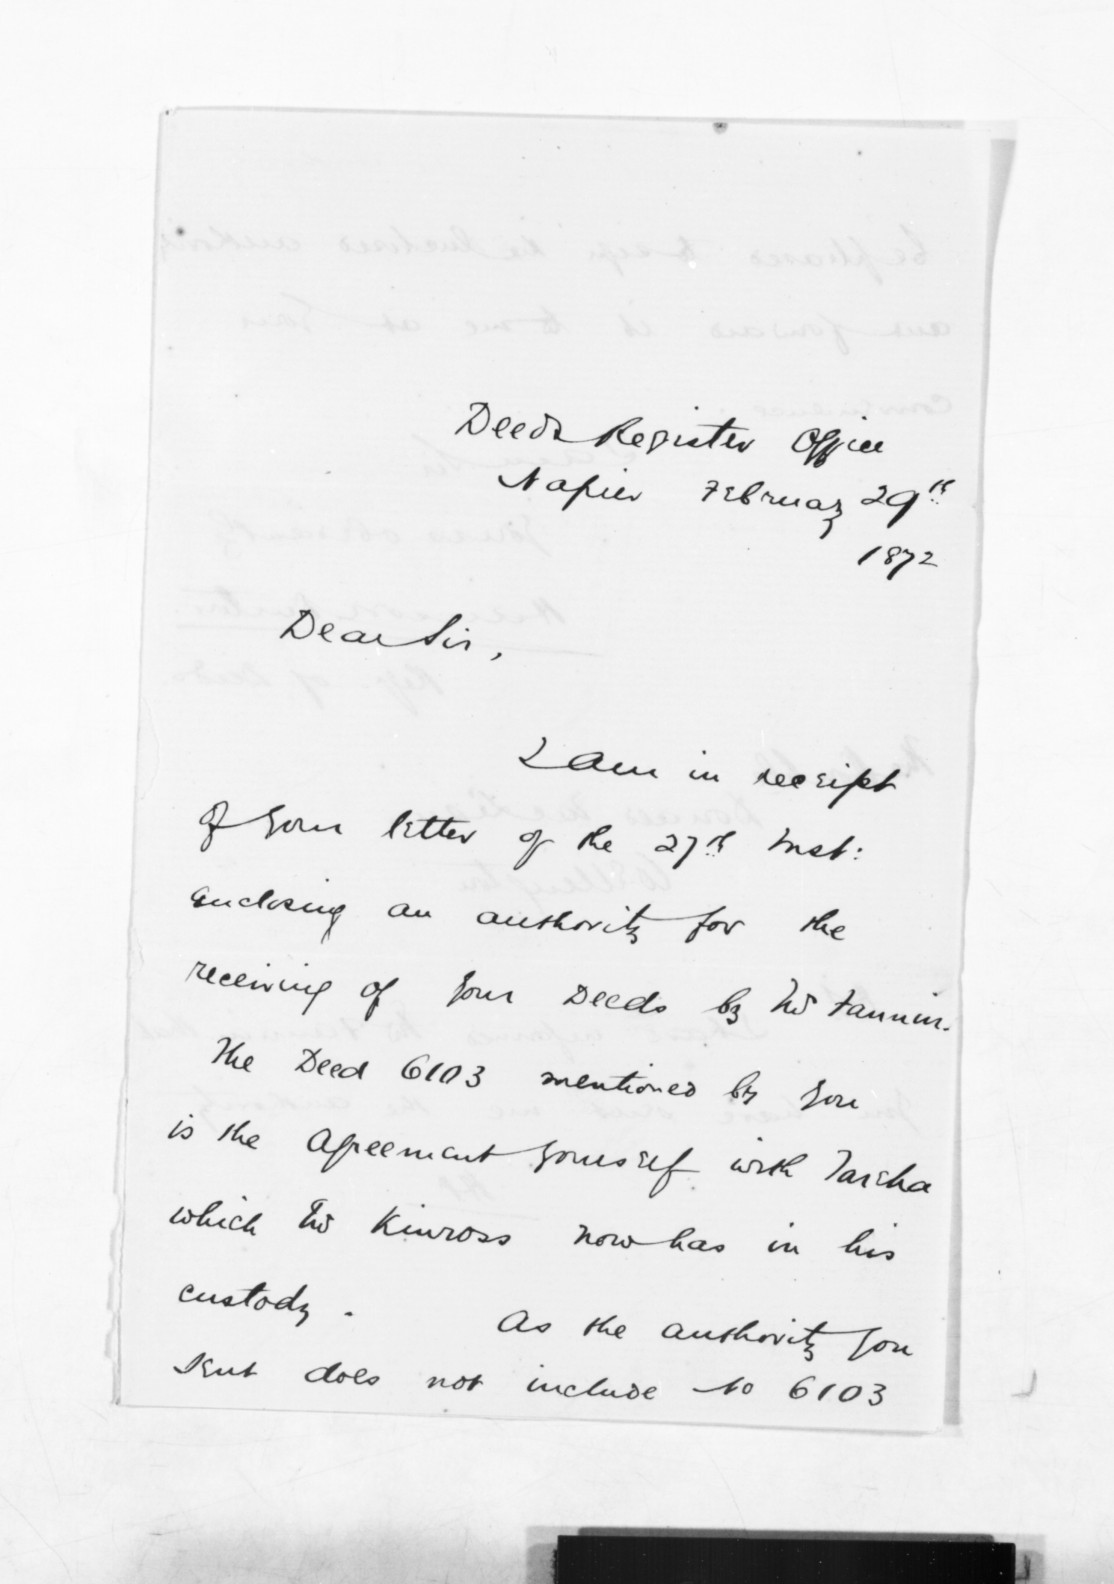 Deeds Register Office
Napier February 29th
1872
Dear Sir,
I am in receipt
of your letter of the 27th Inst:
enclosing an authority for the
receiving of your Deeds by Mr Fannin.
The Deed 6103 mentioned by you
is the agreement yourself with Tareha
which Mr Kinross now has in his
custody. As the authority you
sent does not include No 6103